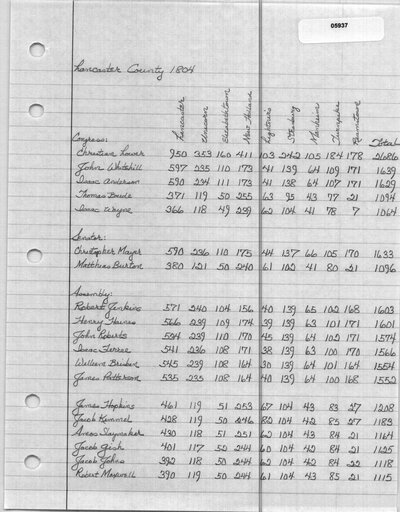 05937
Lancaster County 1804
Lancaster Unicorn Elizabethtown New Holland Strasburg Manheim Turnpike Total
Congress:
Christian Lower 950 353 160 411 103 242 105 184 178 2686
John Whitehill 597 235 110 173 41 139 64 109 171 1639
Isaac Anderson 590 234 111 173 41 138 64 107 171 1629
Thomas Boude 371 119 50 255 63 95 43 77 21 1094
Isaac Wayne 366 118 49 239 62 104 41 78 7 1064
Senator:
Christopher Mayer 590 236 110 175 44 137 66 105 170 1633
Matthias Burton 380 121 50 240 61 102 41 80 21 1096
Assembly:
Robert Jenkins 571 240 104 156 40 139 65 102 168 1603
Henry Haines 566 239 109 174 39 139 63 101 171 1601
John Roberts 504 239 110 170 45 139 64 102 171 1574
Isaac Ferree 541 236 108 171 38 139 63 100 170 1566
William Brisben 545 239 108 164 30 139 64 101 164 1554
James Patterson 535 235 108 164 40 139 64 100 168 1552
James Hopkins 461 119 51 253 67 104 43 83 27 1208
Jacob Kimmel 428 119 50 246 82 104 42 85 27 1183
Amos Slaymaker 430 118 51 251 62 104 43 84 21 1164
Jacob Gish 401 117 50 244 60 104 42 84 21 1125
Jacob Johns 392 118 50 244 62 104 42 84 22 1118
Robert Maxwell 390 119 50 244 61 104 43 85 21 1115